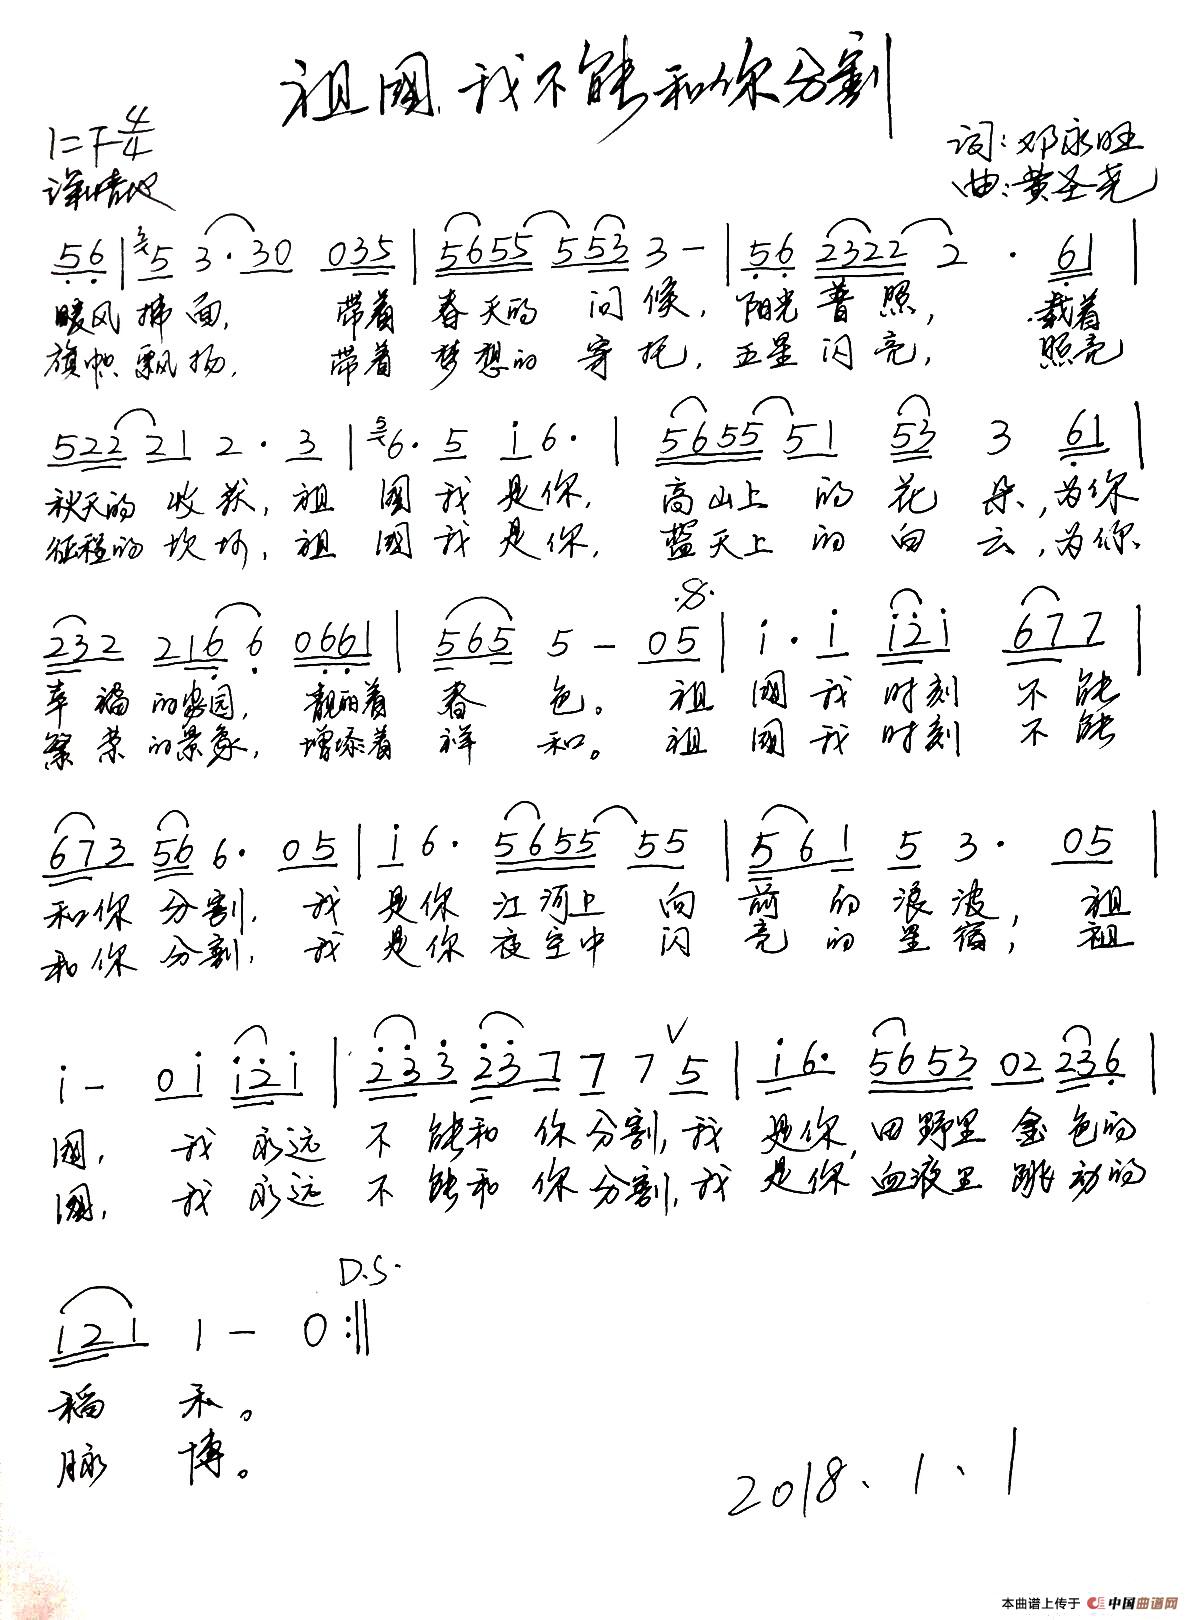 祖國,我不能和你分割
1=F 4/4
词:邓永旺
深情地
曲:黄圣尧
56 | 5 3·30 035 | 5655 553 3 - | 56 2322 2 · 61 |
暖风拂面, 带着 春天的 问候, 阳光普照, 载着
旗帜飘扬, 带着 梦想的 寄托, 五星闪亮, 照亮
522 21 2·3 | 6·5 i 6· | 5655 51 53 3 61 |
秋天的 收获, 祖 國我是你, 高山上 的花朵, 为你
征程的 坎坷, 祖 國我是你, 蓝天上 的白云, 为你
232 216 6 0661 | 565 5 - 05 | i·i i2i 677 |
幸福的家园, 靓丽着 春 色。 祖 國我时刻 不能
繁荣的景象, 增添着 祥 和。 祖 國我时刻 不能
673 56 6· 05 | i 6· 5655 55 | 561 5 3· 05 |
和你 分割, 我 是你 江河上 向 前的浪波, 祖
和你 分割, 我 是你 夜空中 闪 亮的星宿, 祖
i - 0i i2i | 233 23 7 7 7 5 | i 6· 5653 02 236 |
國, 我 永远 不能和你分割, 我 是你, 田野里 金色的
國, 我 永远 不能和你分割, 我 是你, 血液里 跳动的
D.S.
i21 1 - 0 :‖
稻 禾。
脉 博。
2018.1.1
本曲谱上传于 中国曲谱网